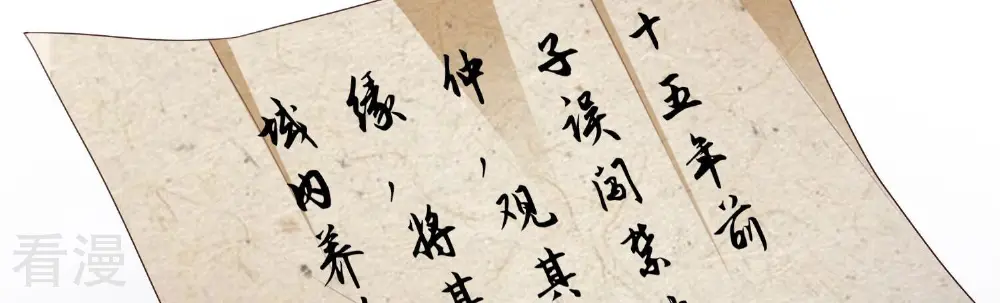 十五年前
子误闯禁
仲，观其
缘，将其
域内养
看漫